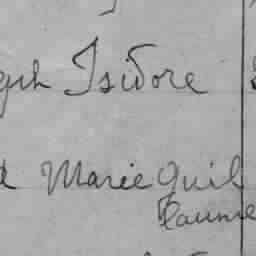 Isidore
Marie Guil
laume